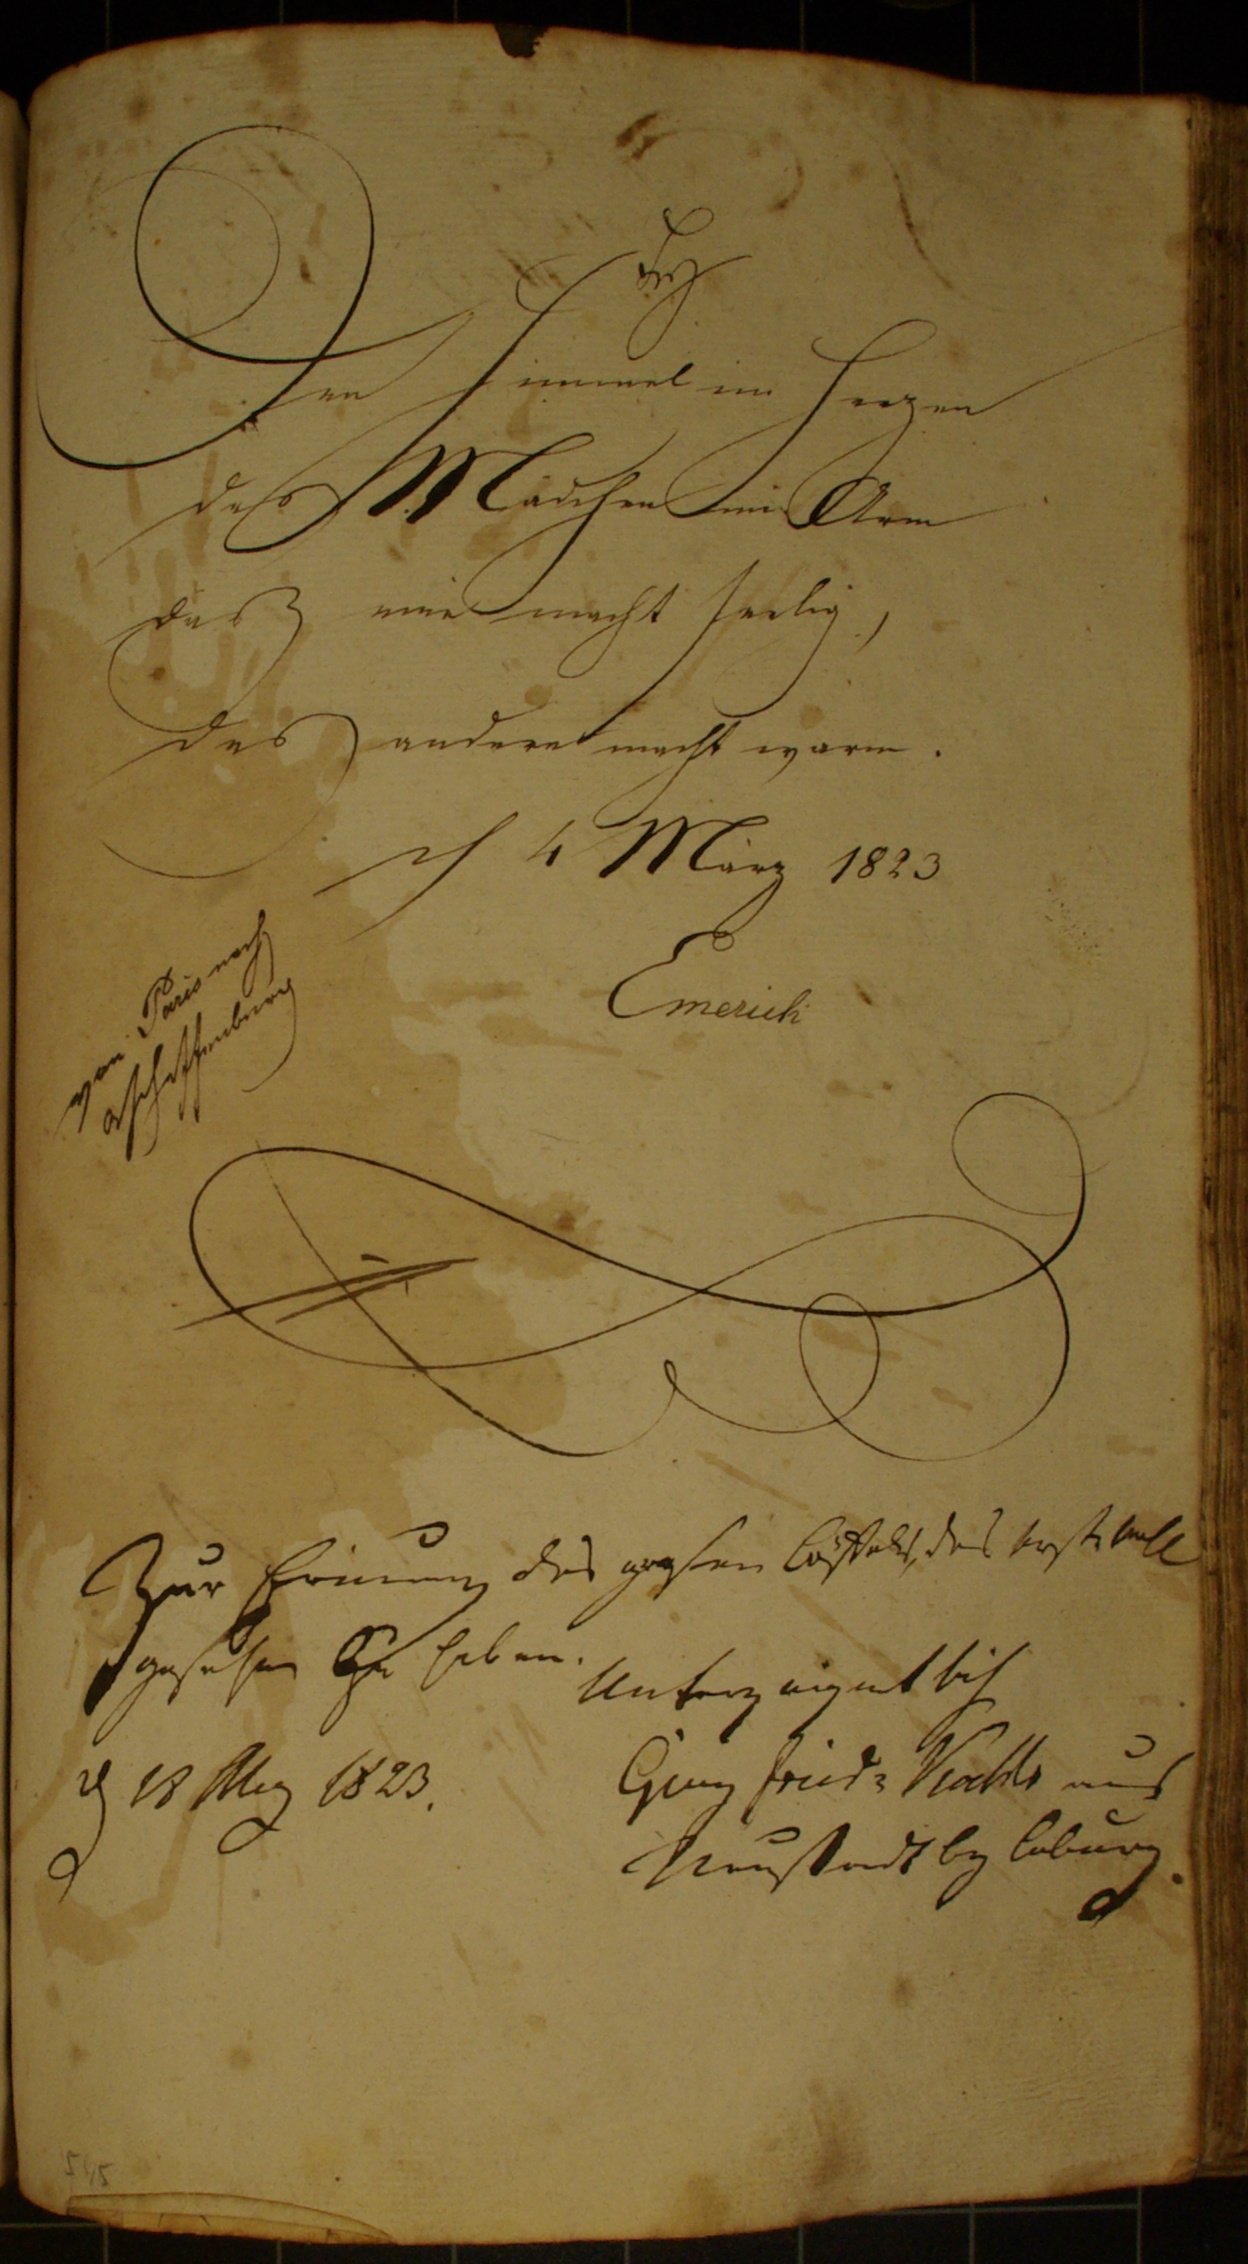 Den Himmel im Herzen
das Mädchen im Arm
das eine macht seelig,
das andere macht warm.
d 4 März 1823
Emerich
von Paris nach
Aschaffenburg
Zur Erinnung des grosen Löffels, das erste mall
gesehen zu haben.
Unterzeignet sich
d 18 May 1823.
Georg Fried= aus
Neustadt by Coburg.